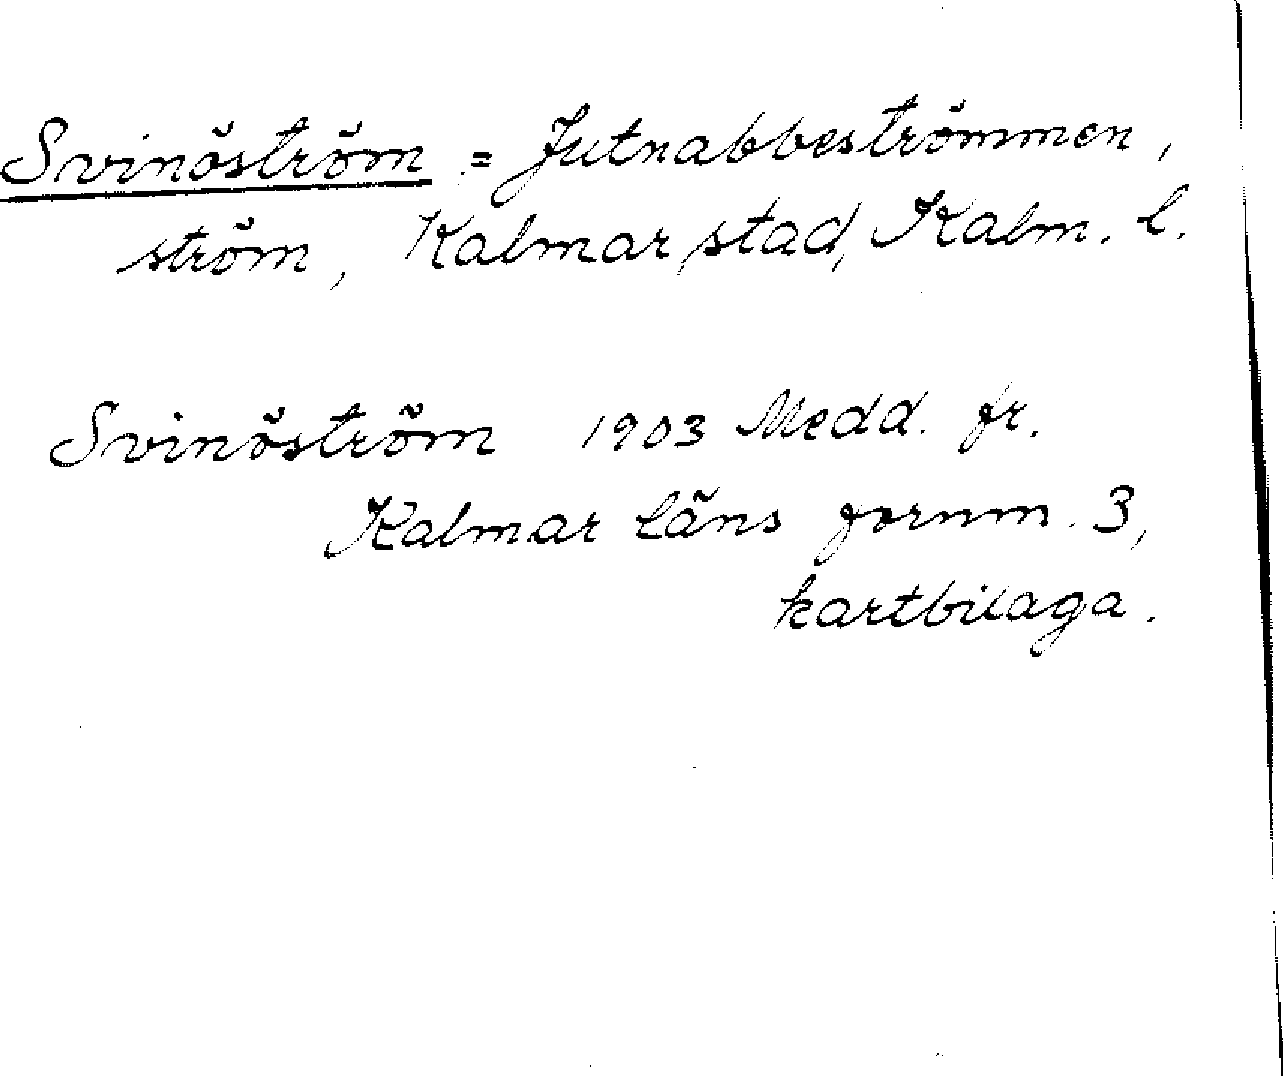 Svinöström = Jutnabbeströmmen,
ström, Kalmar stad, Kalm. l.
Svinöström 1903 Medd. fr.
Kalmar läns fornm. 3,
kartbilaga.